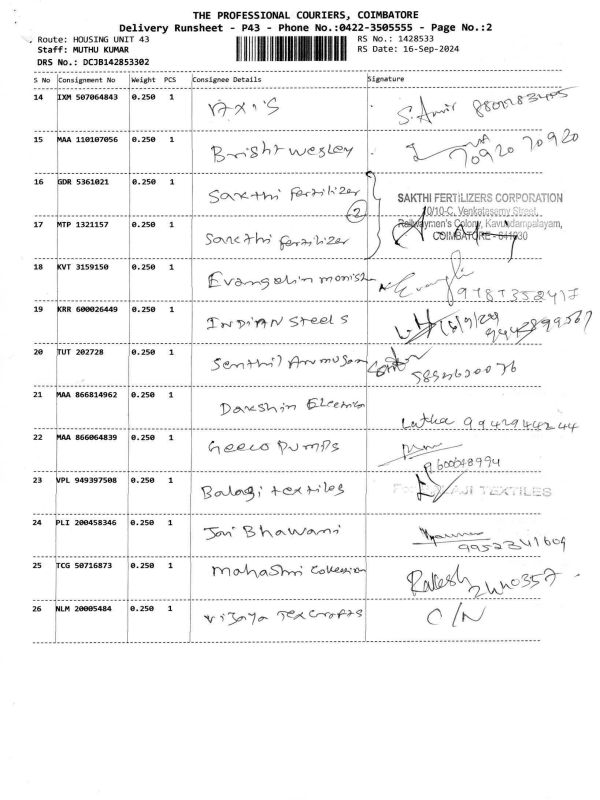 THE PROFESSIONAL COURIERS, COIMBATORE
Delivery Runsheet - P43 - Phone No.:0422-3505555 - Page No.:2
Route: HOUSING UNIT 43 RS No.: 1428533
Staff: MUTHU KUMAR RS Date: 16-Sep-2024
DRS No.: DCJB142853302
S No Consignment No Weight PCS Consignee Details Signature
14 IXM 507064843 0.250 1
15 MAA 110107056 0.250 1 Bright wesley 70920 70920
16 GDR 5361021 0.250 1 Sakthi Fertilizer
2
SAKTHI FERTILIZERS CORPORATION
10/10-C, Venkatasamy Street,
Railwaymen's Colony, Kavundampalayam,
COIMBATORE - 641030
17 MTP 1321157 0.250 1 Sakthi fertilizer
18 KVT 3159150 0.250 1 Evangelin monish
19 KRR 600026449 0.250 1 INDIAN Steels
20 TUT 202728 0.250 1 Senthil Arumugam
21 MAA 866814962 0.250 1 Darshin Electrical Latha 9942944244
22 MAA 866064839 0.250 1 Geeco Pumps 9600048994
23 VPL 949397508 0.250 1 Balagi textiles BALAJI TEXTILES
24 PLI 200458346 0.250 1 Jai Bhawani 9952341609
25 TCG 50716873 0.250 1 mahashri Collection Rakesh
26 NLM 20005484 0.250 1 vijaya Texcrafts C/N